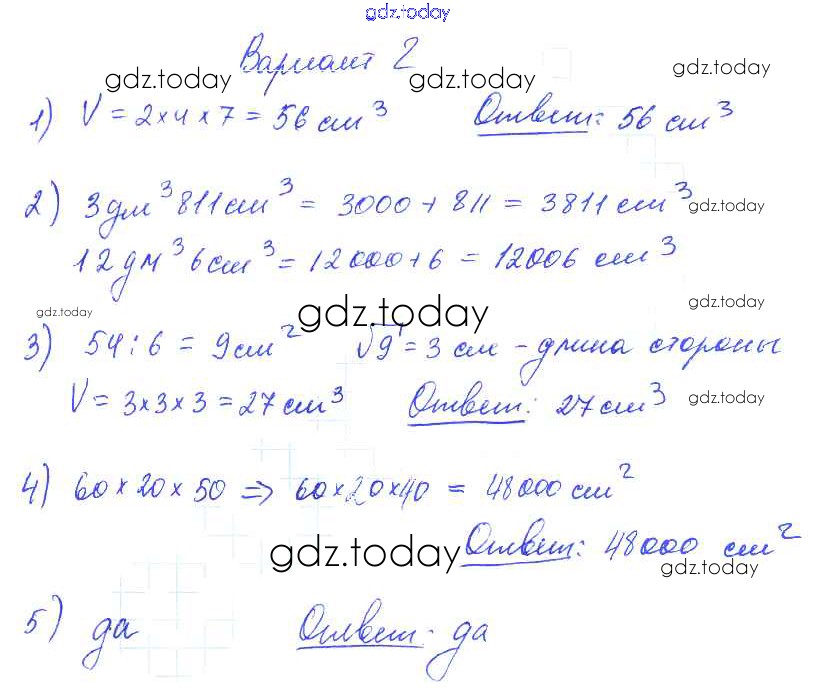 gdz.today
Вариант 2
gdz.today gdz.today gdz.today
1) V = 2×4×7 = 56 см³ Ответ: 56 см³
2) 3 дм³ 811 см³ = 3000 + 811 = 3811 см³ gdz.today
12 дм³ 6 см³ = 12 000 + 6 = 12006 см³
gdz.today gdz.today gdz.today
3) 54 : 6 = 9 см² √9 = 3 см – длина стороны
V = 3×3×3 = 27 см³ Ответ: 27 см³ gdz.today
4) 60×20×50 ⇒ 60×20×40 = 48 000 см²
gdz.today Ответ: 48 000 см²
gdz.today
5) да Ответ: да